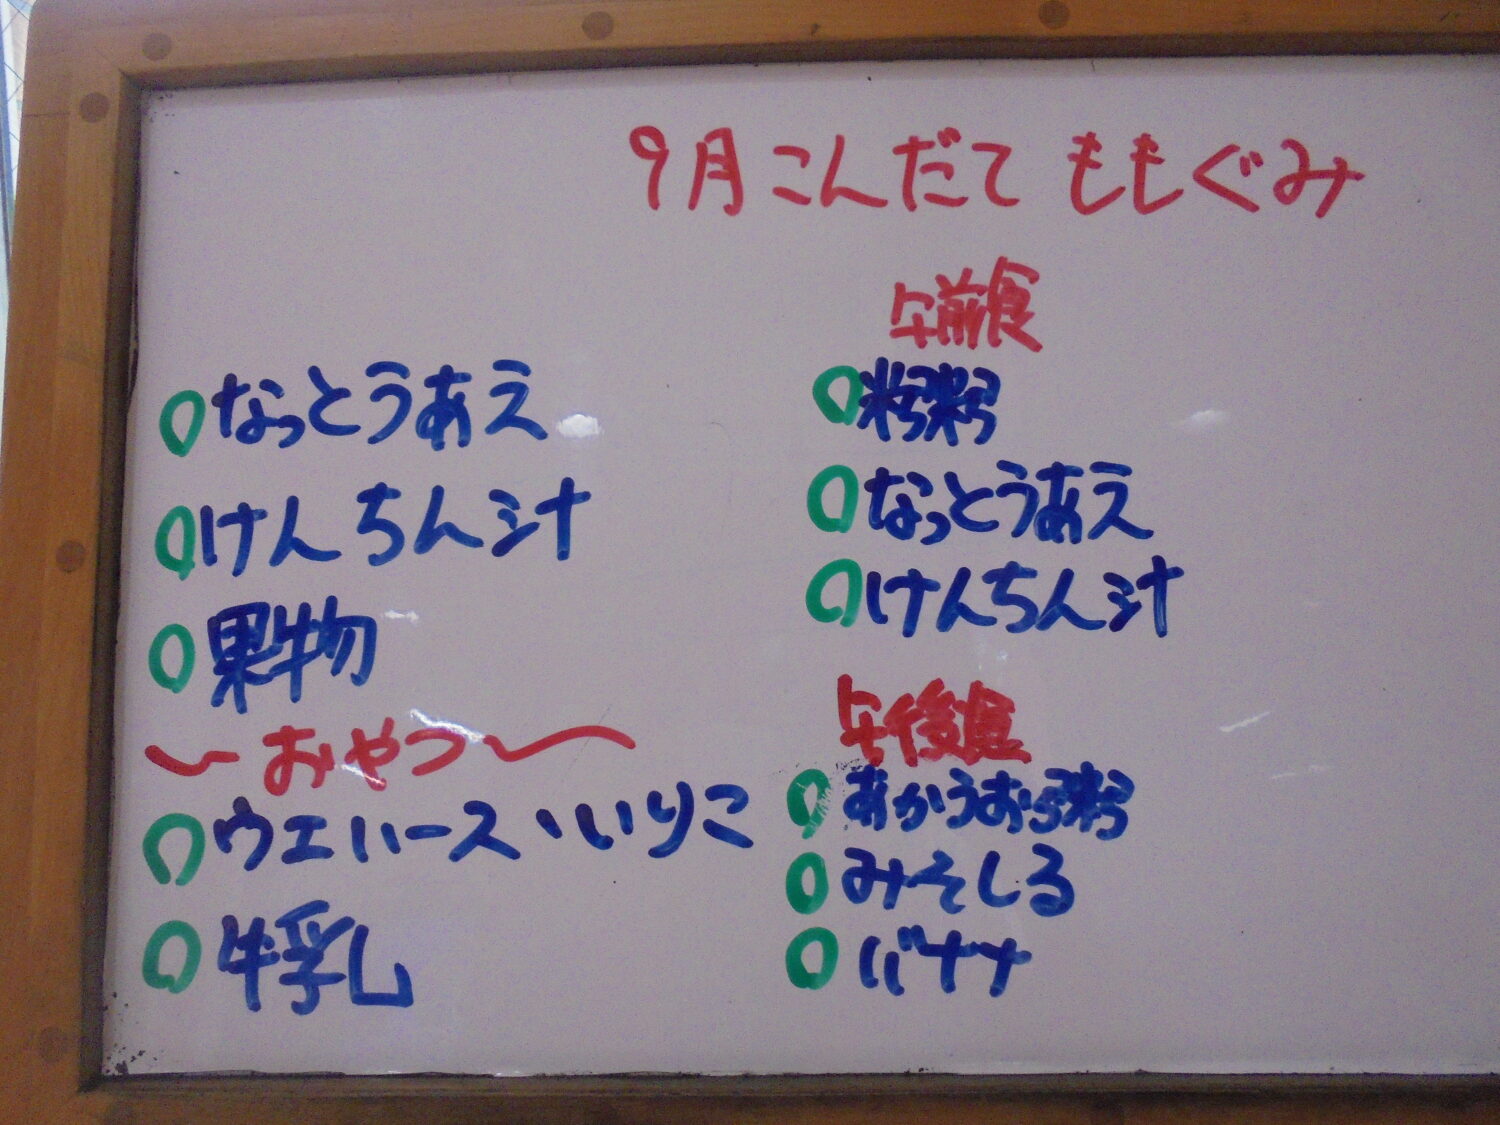 9月こんだて ももぐみ
なっとうあえ
けんちん汁
果物
おやつ
ウエハース、いりこ
牛乳
午前食
粥
なっとうあえ
けんちん汁
午後食
みそしる
バナナ